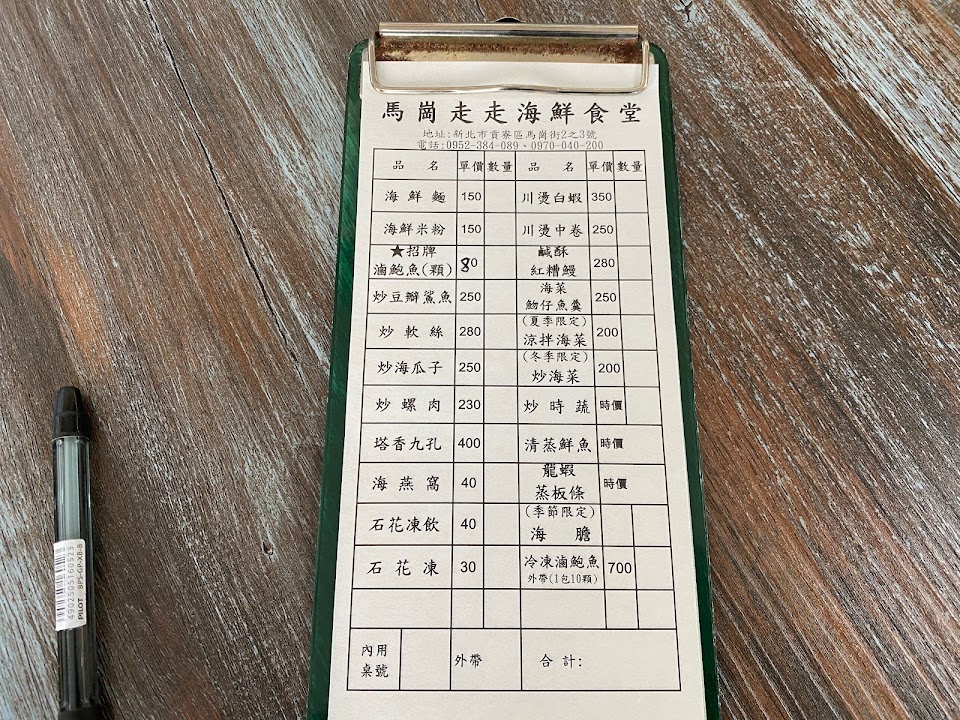 馬崗走走海鮮食堂
地址:新北市貢寮區馬崗街2之3號
電話:0952-384-089、0970-040-200
品 名 單價 數量 品 名 單價 數量
海鮮麵 150 川燙白蝦 350
海鮮米粉 150 川燙中卷 250
★招牌
滷鮑魚(顆) 80 鹹酥
紅糟鰻 280
炒豆瓣鯊魚 250 海菜
魩仔魚羹 250
炒軟絲 280 (夏季限定)
涼拌海菜 200
炒海瓜子 250 (冬季限定)
炒海菜 200
炒螺肉 230 炒時蔬 時價
塔香九孔 400 清蒸鮮魚 時價
海燕窩 40 龍蝦
蒸板條 時價
石花凍飲 40 (季節限定)
海膽
石花凍 30 冷凍滷鮑魚
外帶(1包10顆) 700
內用
桌號 外帶 合計:
PILOT BPS-GP-XB-B
4902505160523